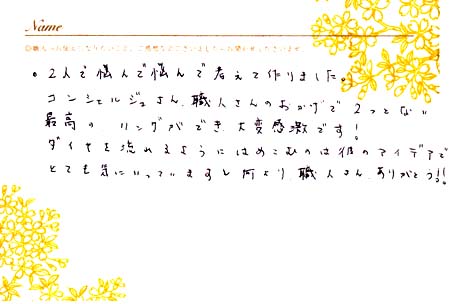 Name
◎職人への伝えになりたいこと、ご感想などございましたらお聞かせくださいませ
。2人で悩んで悩んで考えて作りました。
コンシェルジュさん、職人さんのおかげで2つとない
最高のリングができ、大変感激です!
ダイヤを流れるようにはめこむのは彼のアイデアで
とても気にいっていますし何より、職人さん、ありがとう!!